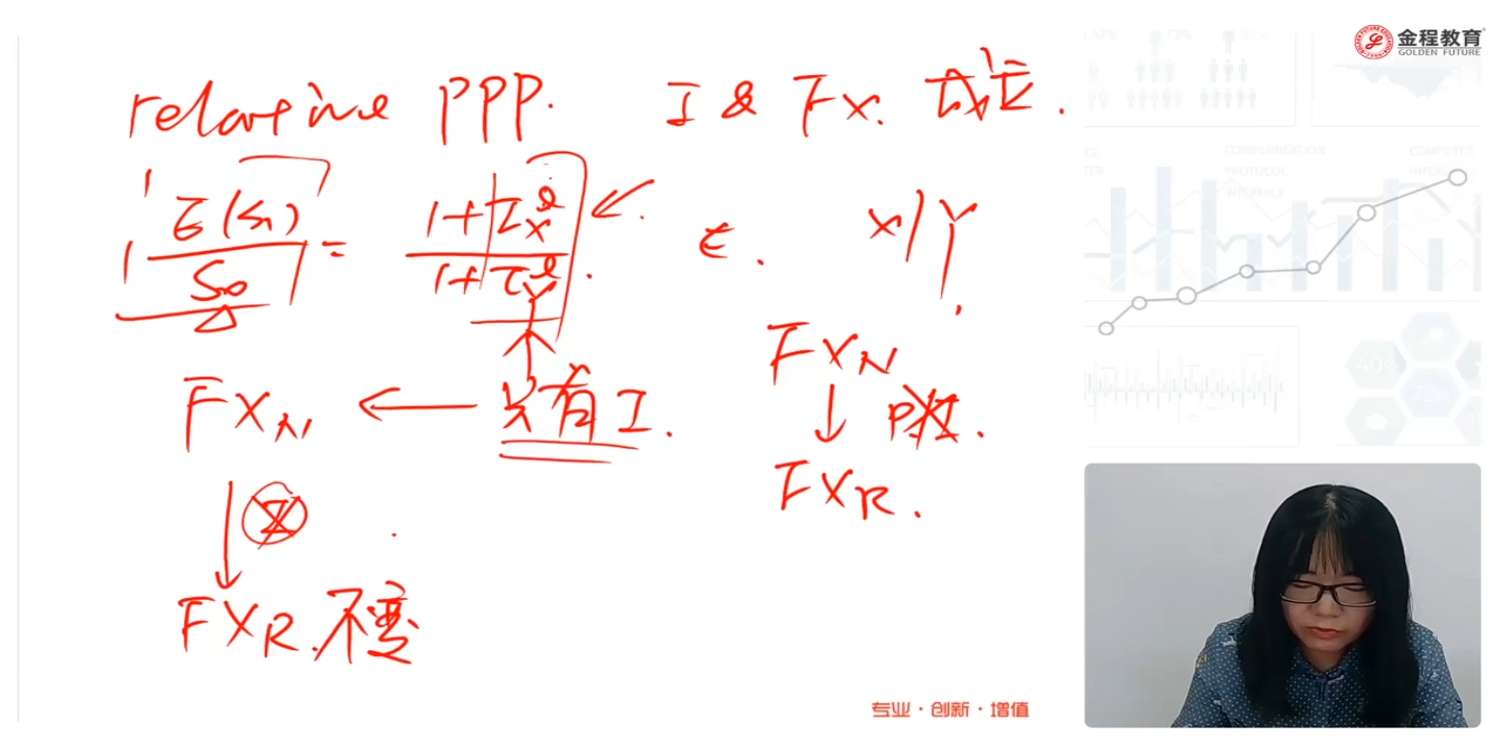 金程教育
GOLDEN FUTURE
relative PPP. I & FX. 成立.
E(S₁) / S₀ = 1+I_X^e / 1+I_Y^e . X/Y
FX_N ← 只有I.
↓
FX_R. 不变
FX_N
↓
FX_R.
专业·创新·增值